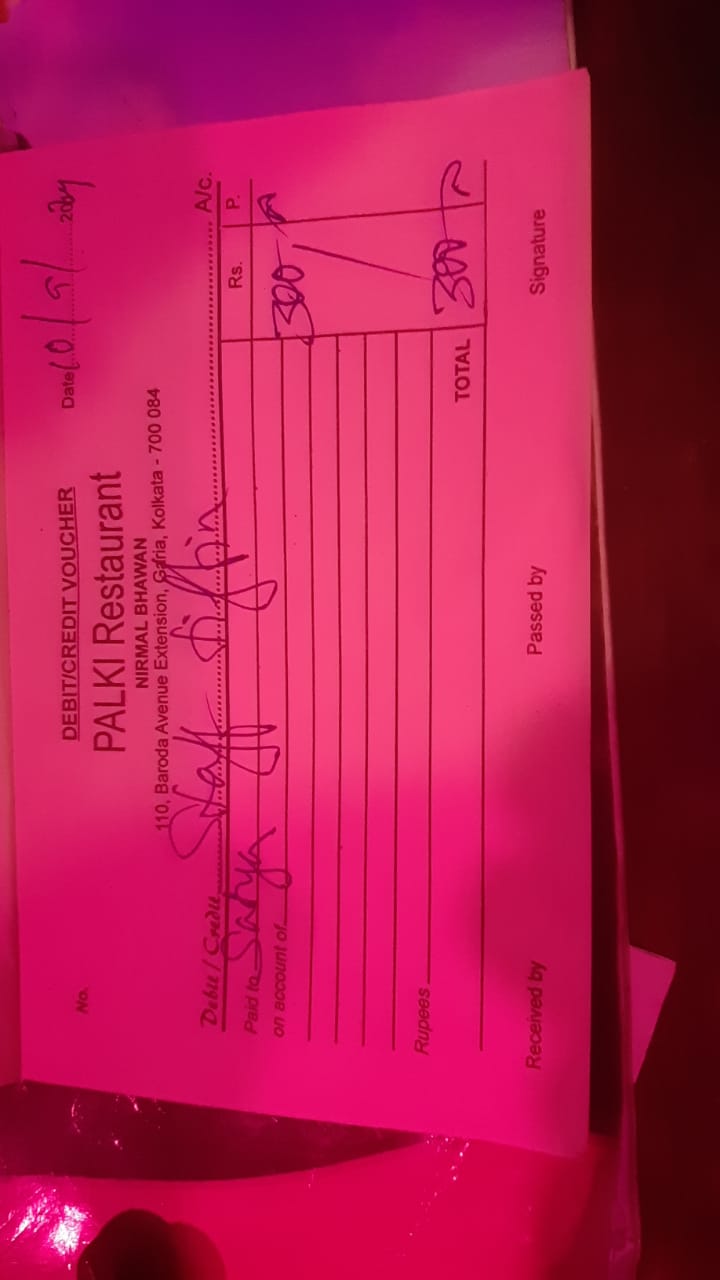 DEBIT/CREDIT VOUCHER
PALKI Restaurant
NIRMAL BHAWAN
110, Baroda Avenue Extension, Garia, Kolkata - 700 084
No. Date 2024
Debit / Credit Staff Tiffin A/c.
Paid to Satya Rs. P.
on account of 300
Rupees
TOTAL 300
Received by Passed by Signature